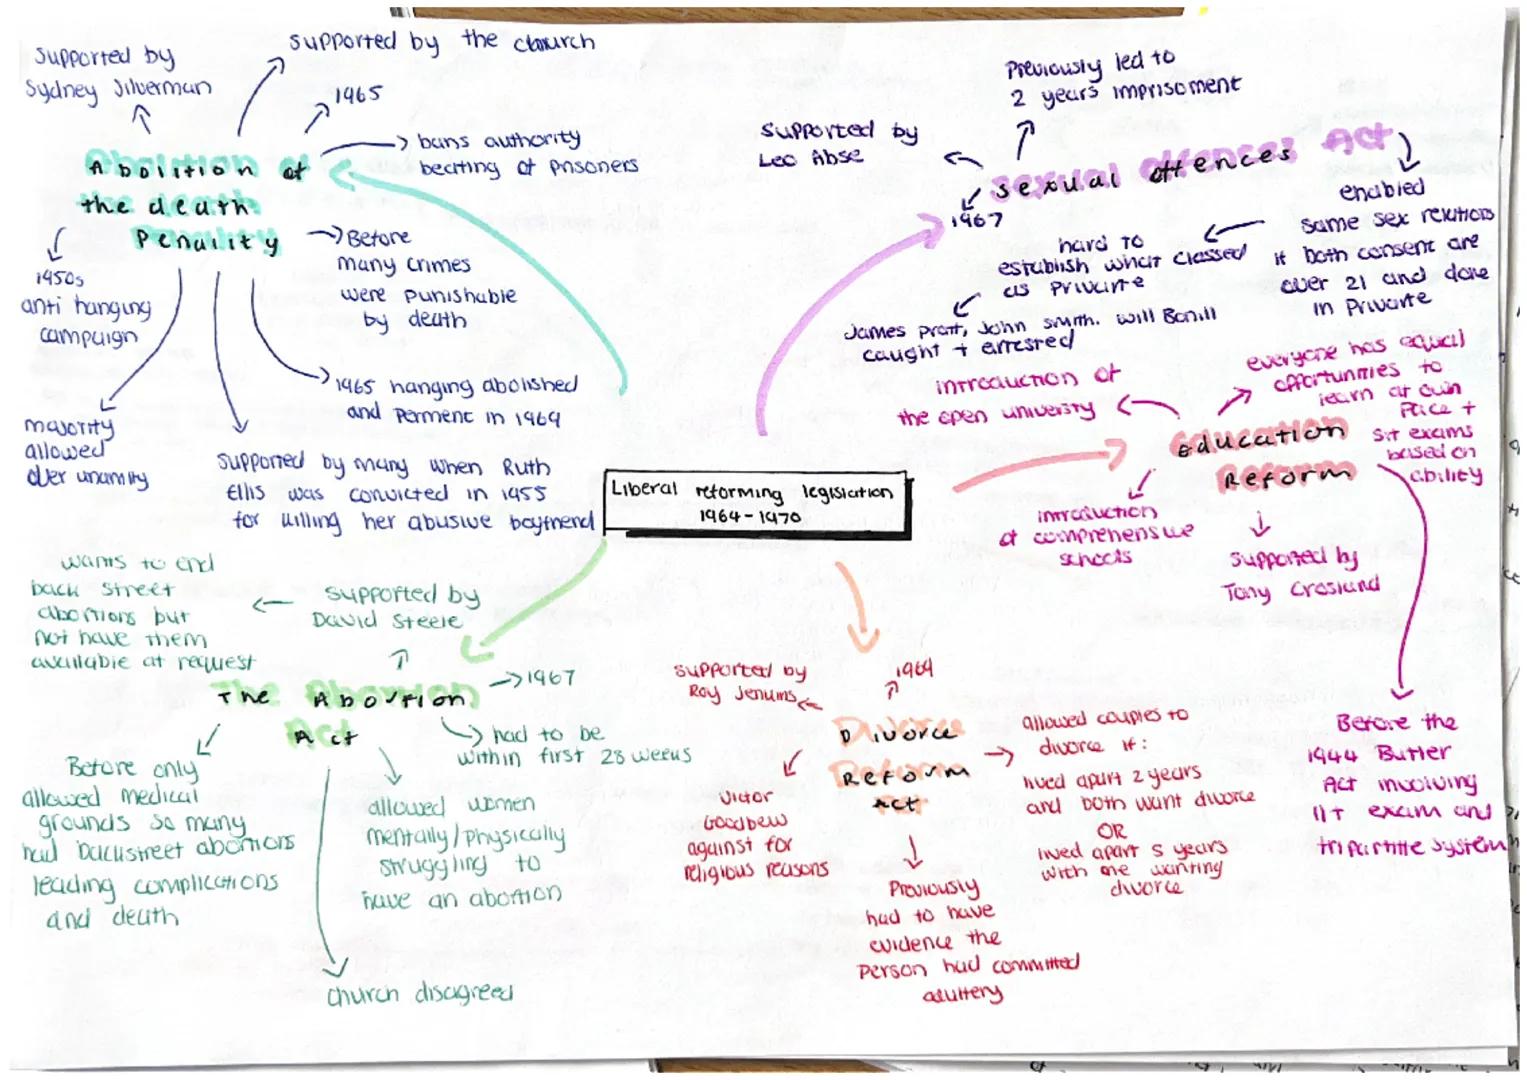 Liberal reforming legislation
1964-1970
Abolition of
the death
Penality
Supported by
Sydney Silverman
Supported by the church
1965
bans authority
beating of prisoners
Before
many crimes
were punishable
by death
1965 hanging abolished
and perment in 1969
Supported by many when Ruth
Ellis was convicted in 1955
for killing her abusive boyfriend
majority
allowed
over unamity
1950s
anti hanging
campaign
Sexual offences Act
Previously led to
2 years imprisoment
Supported by
Leo Abse
1967
enabled
same sex relations
if both consent are
over 21 and done
in private
hard to
establish what classed
as private
James Pratt, John smith. will Bonill
caught + arrested
Education
Reform
introduction of
the open university
everyone has equal
oppertunities to
learn at own
pace +
sit exams
based on
ability
introduction
of comprehensive
schools
Supported by
Tony Crosland
Before the
1944 Butler
Act involving
11+ exam and
tripartite system
Divorce
Reform
Act
Supported by
Roy Jenkins
1969
allowed couples to
divorce if:
lived apart 2 years
and both want divorce
OR
lived apart 5 years
with one wanting
divorce
Previously
had to have
evidence the
person had committed
adultery
Victor
Goodbew
against for
religious reasons
The Abortion
Act
Supported by
David Steele
wants to end
back street
abortions but
not have them
available at request
1967
had to be
within first 28 weeks
allowed women
mentally/physically
struggling to
have an abortion
Church disagreed
Before only
allowed medical
grounds so many
had backstreet abortions
leading complications
and death